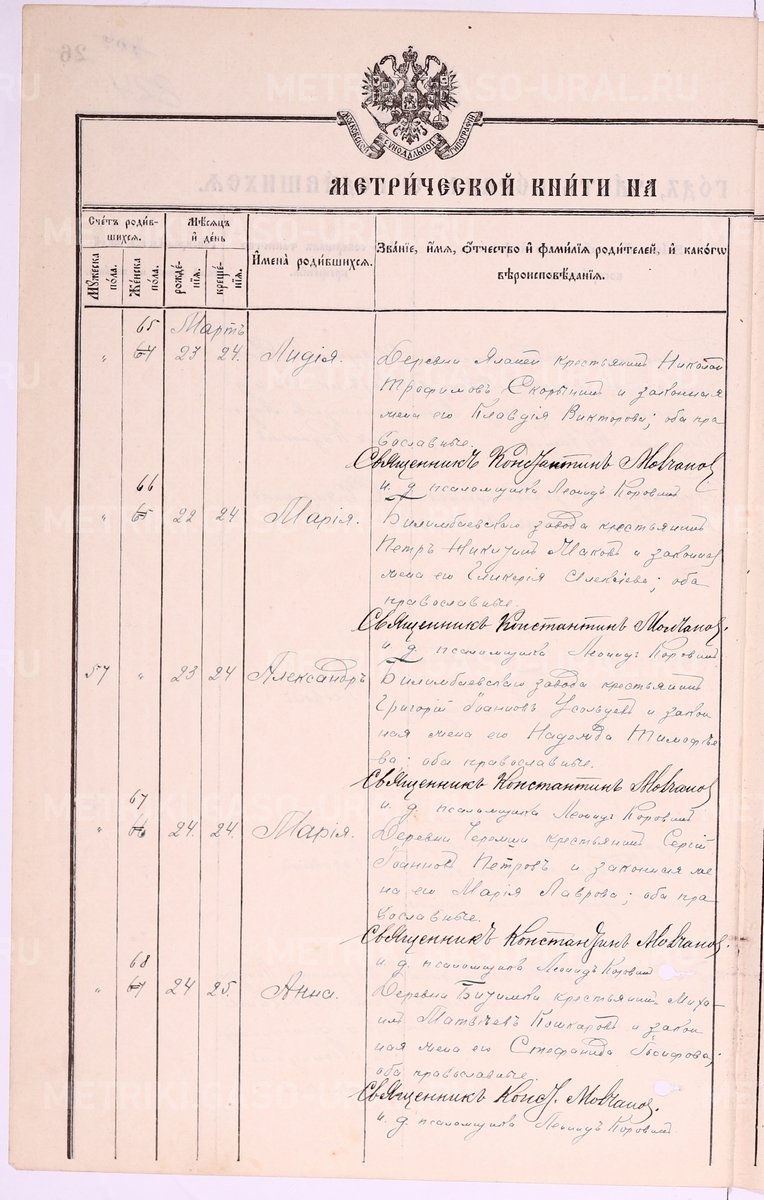 МОСКОВСКОЙ СѴНОДАЛЬНОЙ ТИПОГРАФІИ
МЕТРИ́ЧЕСКОЙ КНИ́ГИ НА
Сче́тъ роди́в-
шихся.
Мѣсяцъ
и҆ де́нь
Мꙋ́жеска
по́ла.
Же́нска
по́ла.
рожде́-
нїѧ.
креще́-
нїѧ.
И҆мена̀ роди́вшихсѧ.
Зва́нїе, и҆́мѧ, ѻ҆́тчество и҆ фами́лїѧ роди́телей, и҆ како́гѡ
вѣроисповѣ́данїѧ.
65 Мартъ
„ 64 23 24. Лидія.
Деревни Ялани крестьянинъ Николай
Трофимовъ и законная
жена его Клавдія Викторова; оба пра
вославные.
Священникъ Константинъ Молчановъ
и. д. псаломщика Леонидъ Коровинъ
66
„ 65 22 24 Марія.
Билимбаевскаго завода крестьянинъ
Петръ Никитинъ и законная
жена его Гликерія Алексѣева; оба
православные.
Священникъ Константинъ Молчановъ.
и. д. псаломщика Леонидъ Коровинъ
57 „ 23 24 Александръ
Билимбаевскаго завода крестьянинъ
Григорій Іоанновъ Усольцевъ и закон
ная жена его Надежда Тимофѣе
ва; оба православные.
Священникъ Константинъ Молчановъ
и. д. псаломщика Леонидъ Коровинъ
67
„ 66 24. 24. Марія.
Деревни Черемши крестьянинъ Сергій
Іоанновъ Петровъ и законная же
на его Марія Лаврова; оба пра
вославные.
Священникъ Константинъ Молчановъ.
и. д. псаломщика Леонидъ Коровинъ
68
„ 67 24 25. Анна.
Деревни Битимки крестьянинъ Миха-
илъ Матвѣевъ Кошкаровъ и закон
ная жена его Стефанида Іосифова;
оба православные.
Священникъ Конст. Молчановъ.
и. д. псаломщика Леонидъ Коровинъ